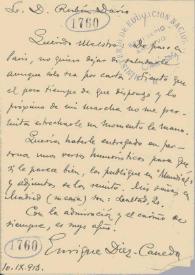 Sr. D. Rubén Darío
1760
Querido Maestro: De paso en
París, no quiero dejar de saludarle
aunque sólo sea por carta. Siento que
el poco tiempo de que dispongo y lo
próximo de mi marcha no me per-
mita estrecharle un momento la mano.
Quería haberle entregado en per-
sona unos versos humorísticos para que
si le parece bien, los publique en Mundial,
y adjuntos se los remito. Mis señas en
Madrid (mi casa) son:
Con la admiración y el cariño de
siempre, es muy suyo.
Enrique Díez-Canedo
1760
10.IX.913.